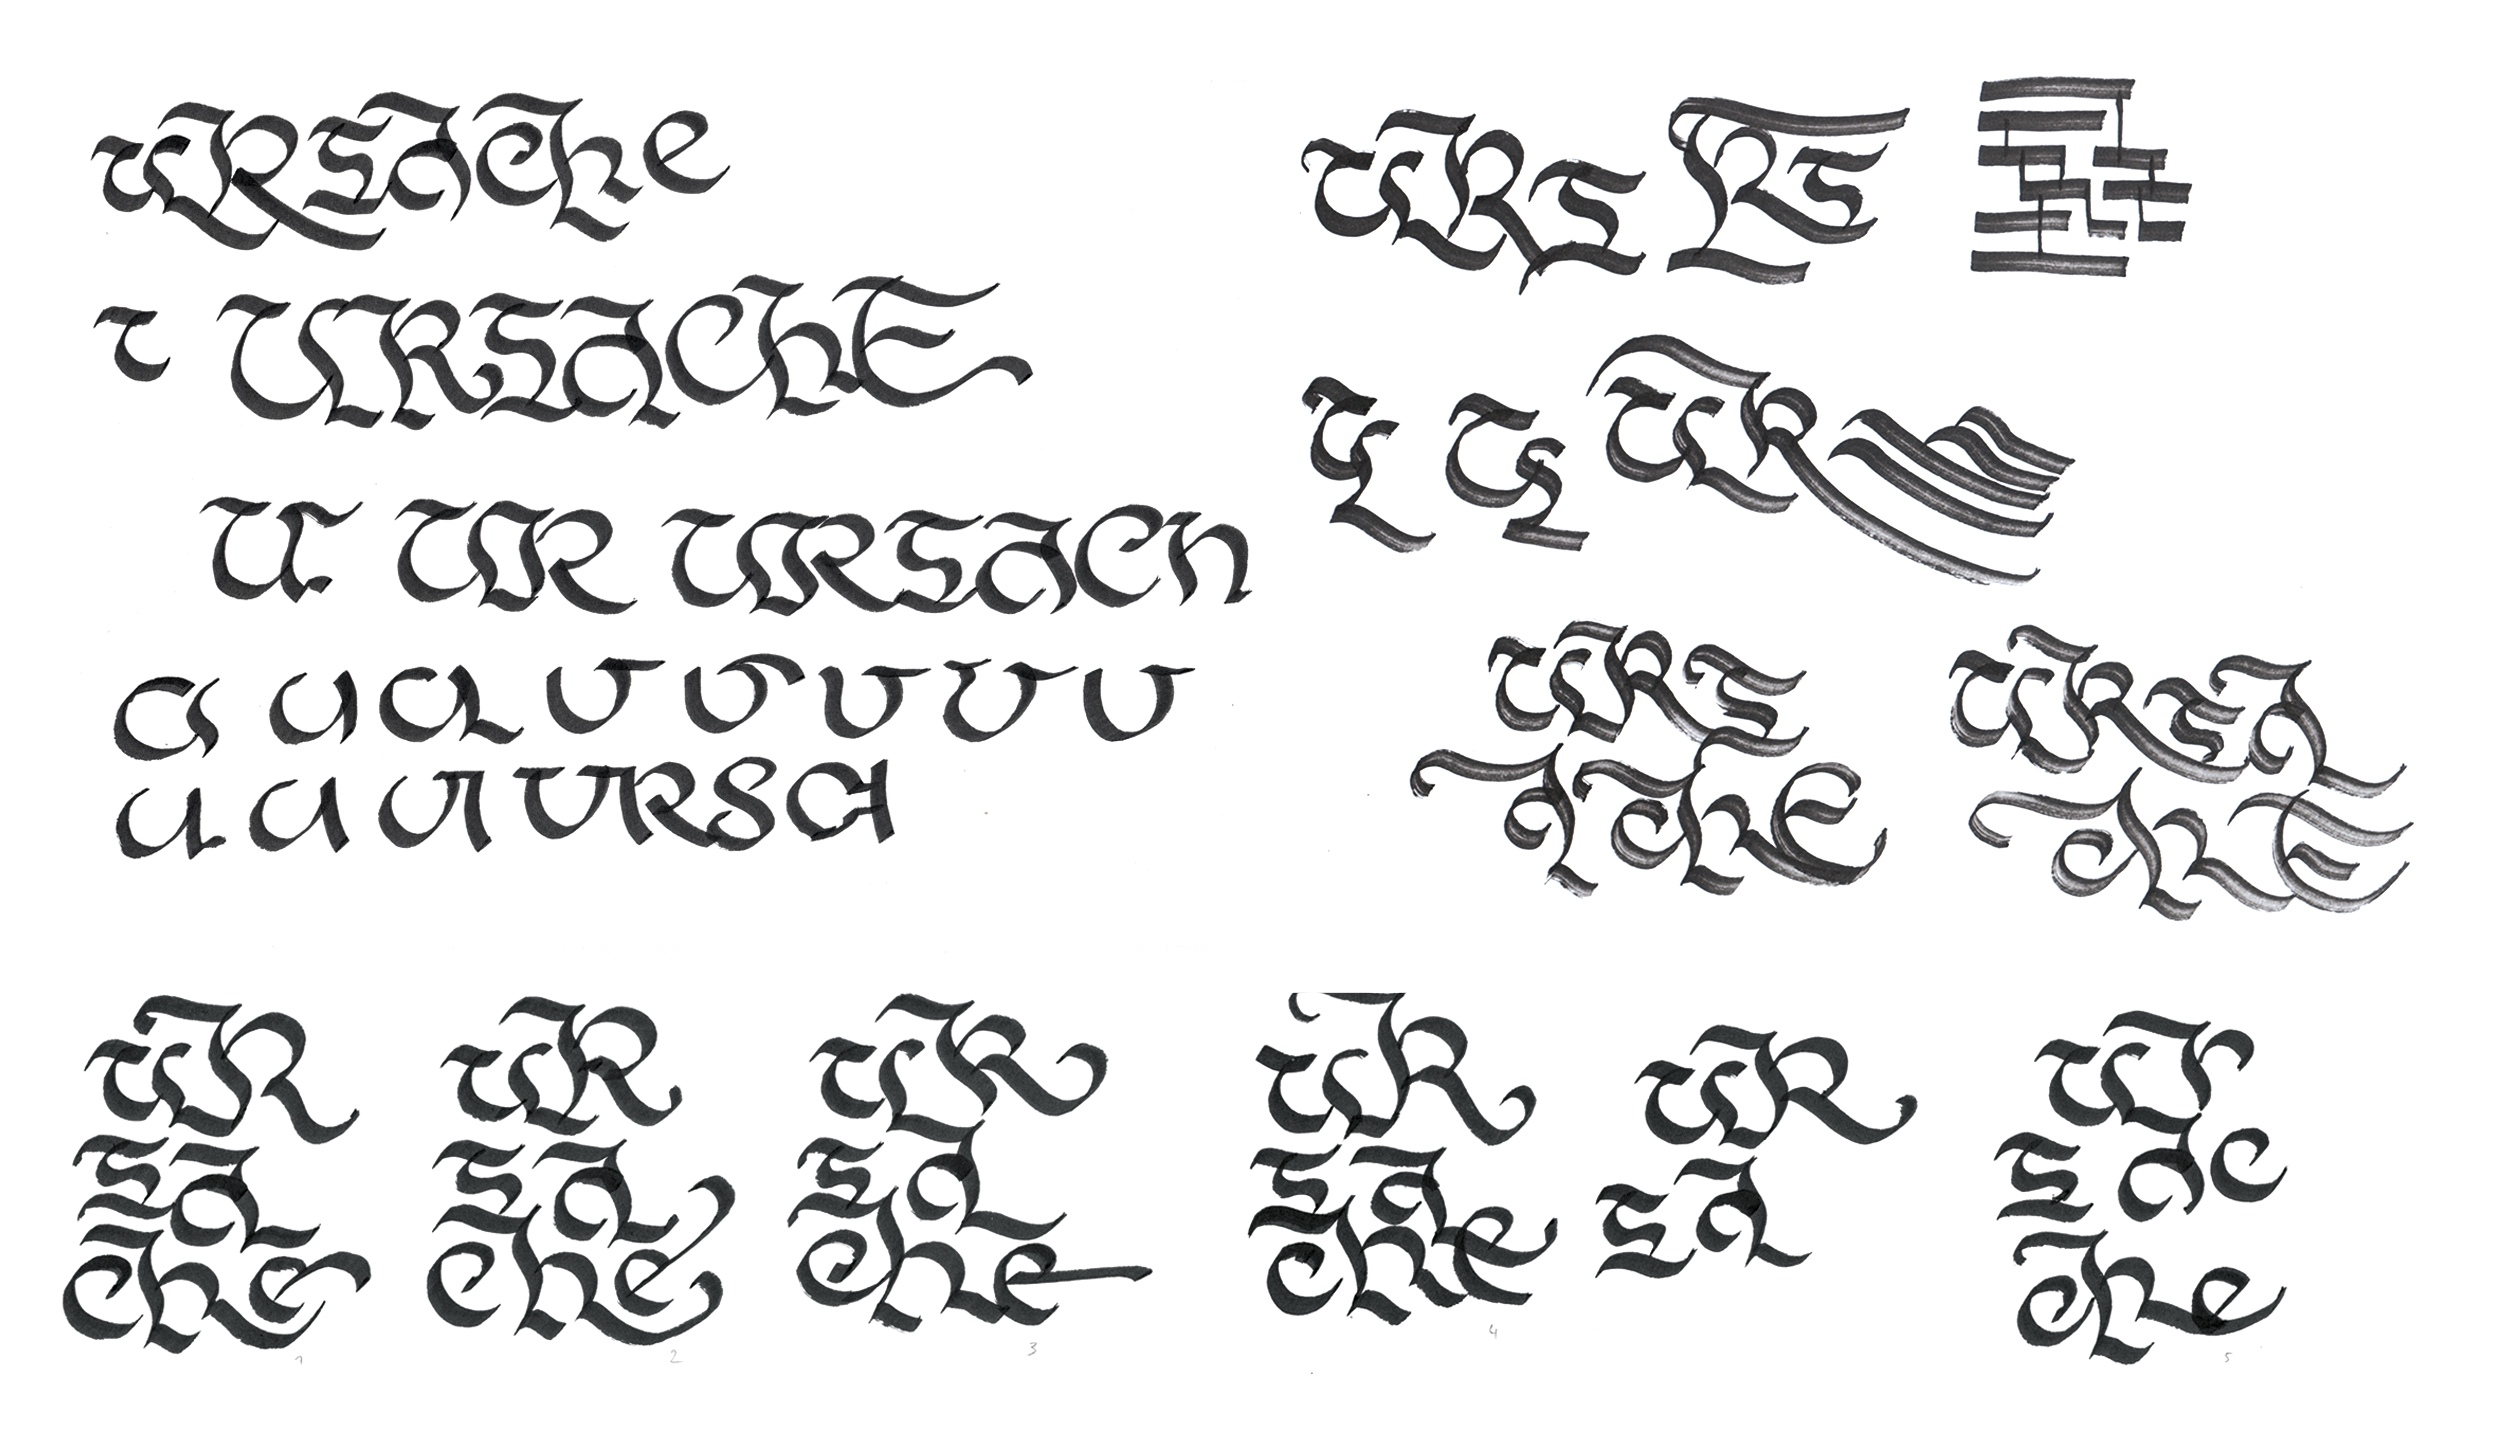 URSAChe
U URSAChE
U UR URSACh
a u a u u u u u
u u u URSA
URS RS
U U UR
URS
AChE
URSA
ChE
UR
SA
Che
1
UR
SA
Che
2
UR
SA
Che
3
UR
SA
Che
4
UR
SA
UR
SAC
Che
5